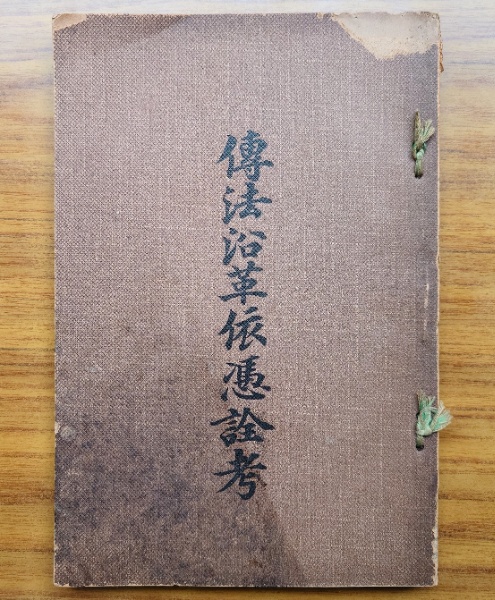 傳法沿革依憑詮考